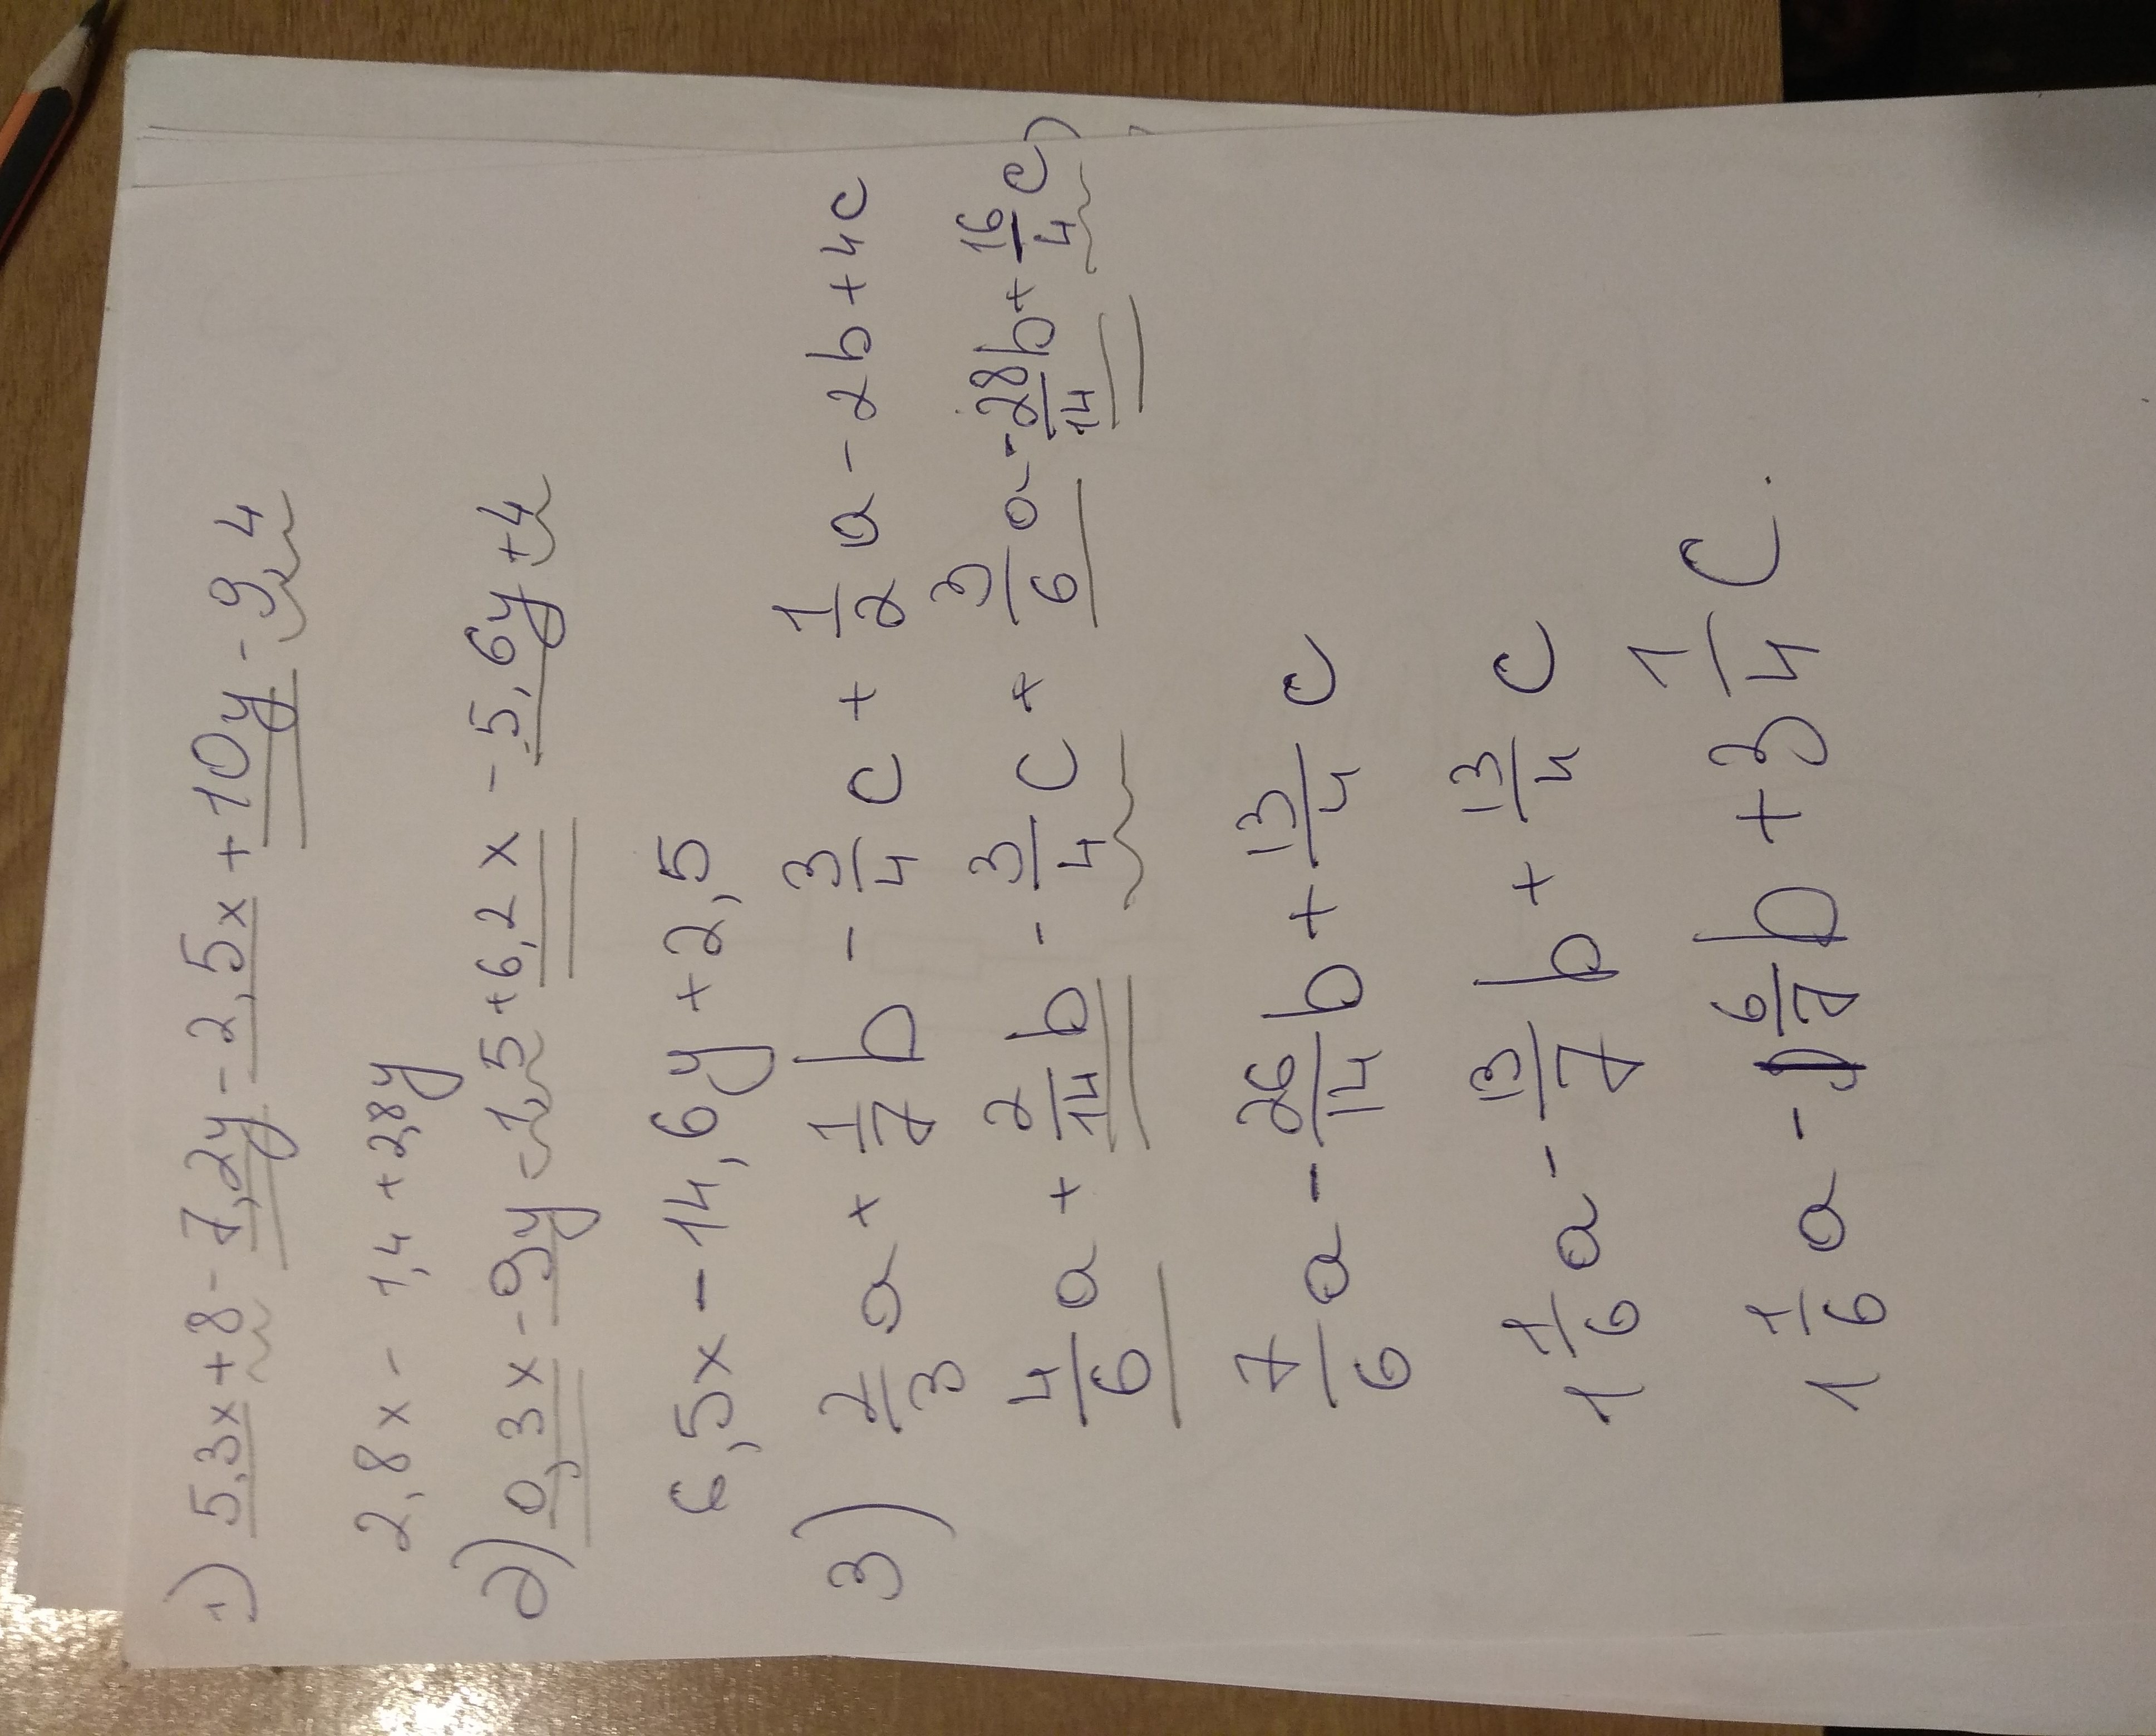 1) 5,3x + 8 - 7,2y - 2,5x + 10y - 9,4
2,8x - 1,4 + 2,8y
2) 0,3x - 9y - 1,5 + 6,2x - 5,6y + 4
6,5x - 14,6y + 2,5
3) 2/3 a + 1/7 b - 3/4 c + 1/2 a - 2b + 4c
4/6 a + 2/14 b - 3/4 c + 3/6 a - 28/14 b + 16/4 c)
7/6 a - 26/14 b + 13/4 c
1 1/6 a - 13/7 b + 13/4 c
1 1/6 a - 1 6/7 b + 3 1/4 c.